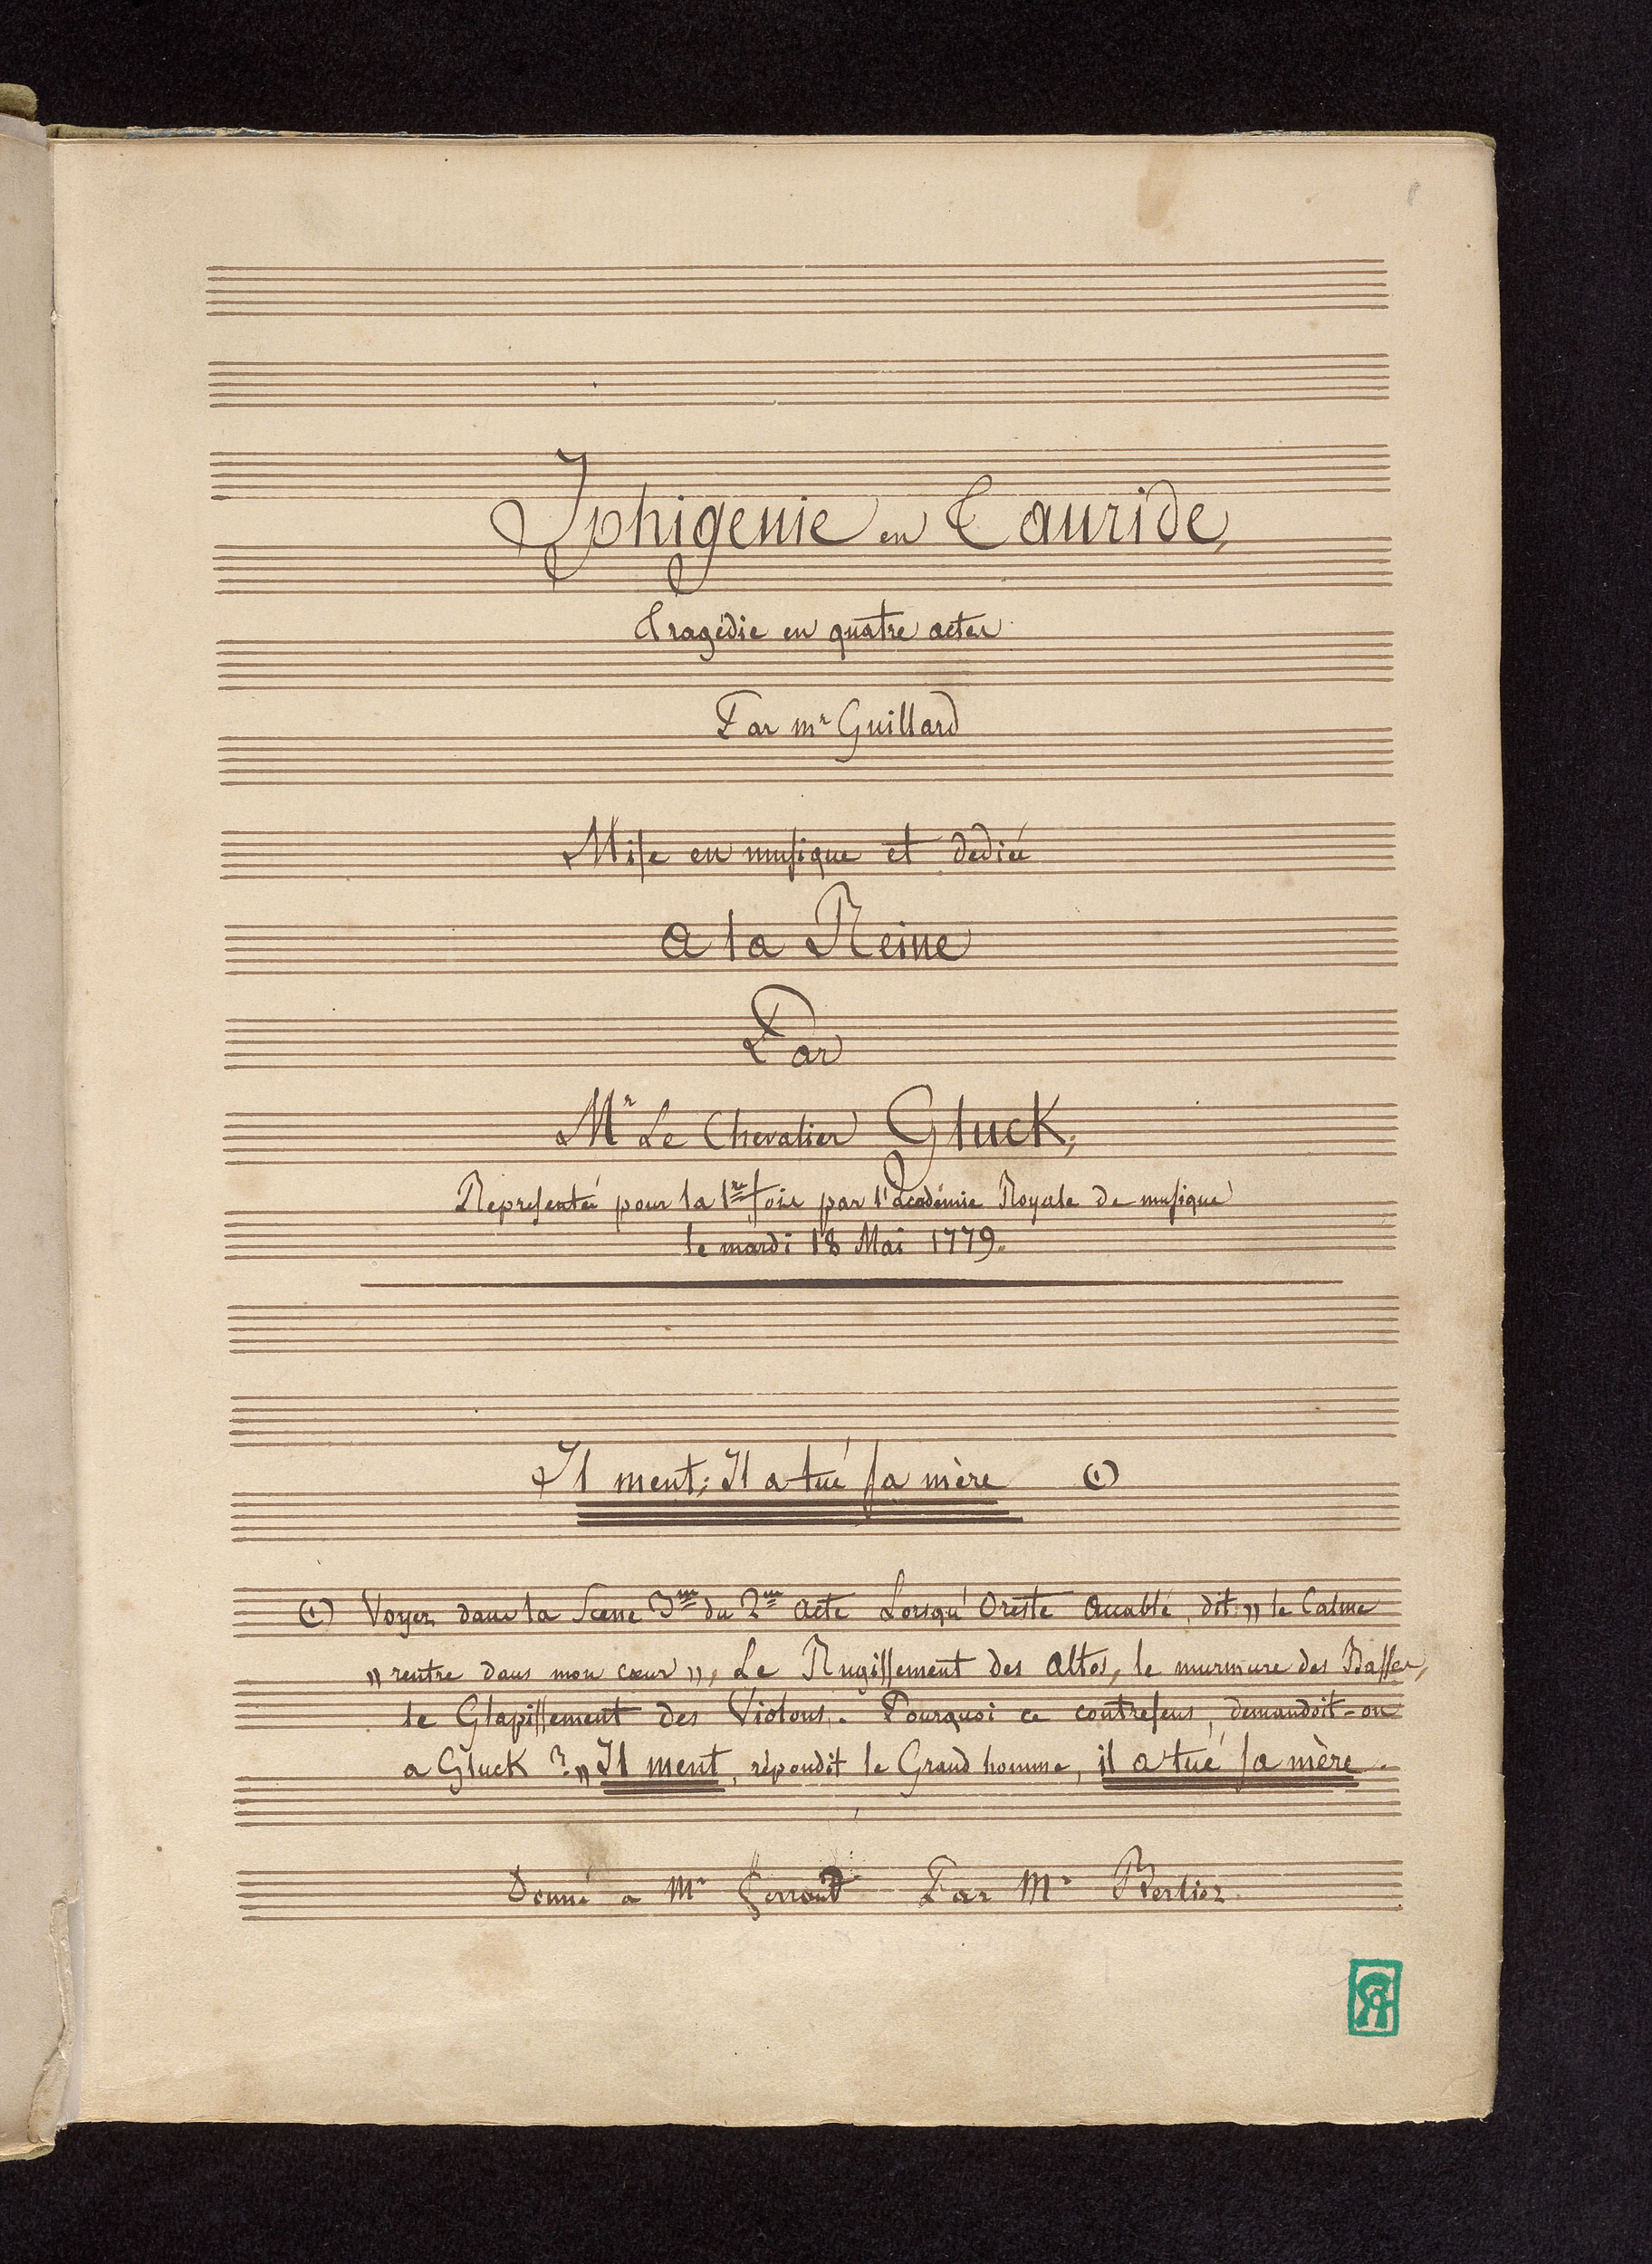 Iphigenie en Tauride,
Tragédie en quatre actes
Par mr Guillard
Mise en musique et dediée
a la Reine
Par
Mr Le Chevalier Gluck,
Representée pour la 1re fois par l'académie Royale de musique
le mardi 18 Mai 1779.
Il ment; Il a tué sa mère (1)
(1) Voyez dans la Scene 3me du 2me Acte Lorsqu'Oreste accablé, dit „ le Calme
„ rentre dans mon cœur „, Le Rugissement des altos, le murmure des Basses,
le Glapissement des Violons. Pourquoi ce contresens, demandoit-on
a Gluck ? „ Il ment, répondit le Grand homme, il a tué sa mère.
Donné a Mr Ferrand Par Mr Berlioz.